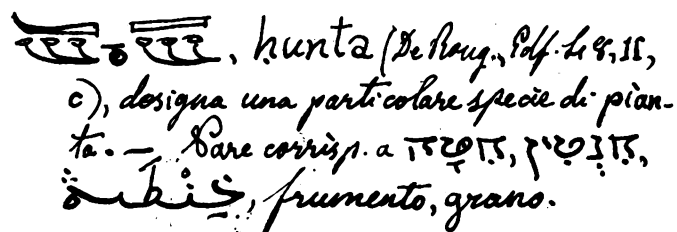 , ḥunta (De Roug., Edf. 8, II,
c), designa una particolare specie di pian-
ta. — Pare corrisp. a חִטָּה, חִנְטִין,
حِنْطَة, frumento, grano.